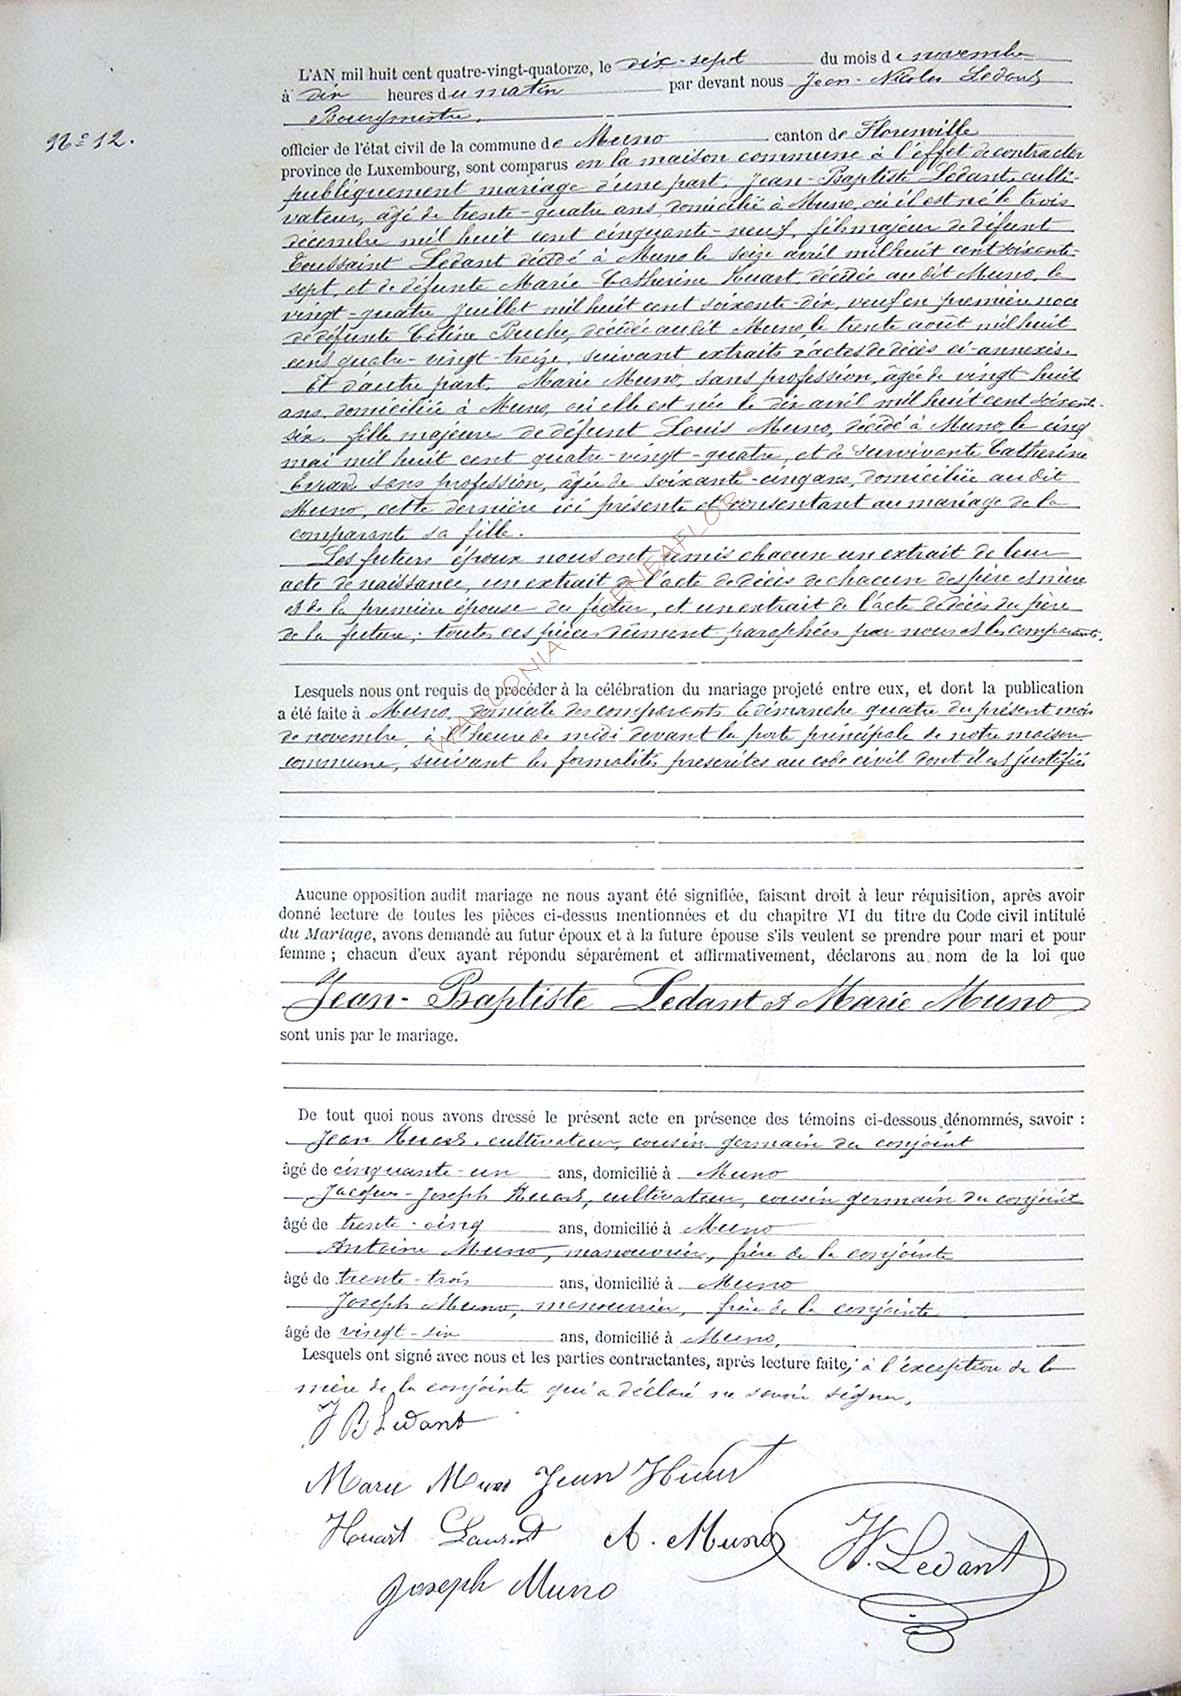 L'AN mil huit cent quatre-vingt-quatorze, le dix-sept du mois de novembre
à dix heures du matin par devant nous Jean-Nicolas Ledant
Bourgmestre,
N° 12.
officier de l'état civil de la commune de Muno canton de Florenville
province de Luxembourg, sont comparus en la maison commune à l'effet de contracter
publiquement mariage d'une part, Jean-Baptiste Ledant, culti-
vateur, âgé de trente-quatre ans, domicilié à Muno, où il est né le trois
décembre mil huit cent cinquante-neuf, fils majeur de défunt
Toussaint Ledant décédé à Muno le seize avril mil huit cent soixante-
sept, et de défunte Marie-Catherine Huart, décédée audit Muno, le
vingt-quatre juillet mil huit cent soixante-dix, veuf en première noce
de défunte Céline Buche, décédée audit Muno, le trente août mil huit
cent quatre-vingt-treize, suivant extraits d'actes de décès ci-annexés.
Et d'autre part, Marie Muno, sans profession, âgée de vingt-huit
ans, domiciliée à Muno, où elle est née le dix avril mil huit cent soixante-
six, fille majeure de défunt Louis Muno, décédé à Muno, le cinq
mai mil huit cent quatre-vingt-quatre, et de survivante Catherine
Errard sans profession, âgée de soixante-cinq ans, domiciliée audit
Muno, cette dernière ici présente et consentant au mariage de la
comparante sa fille.
Les futurs époux nous ont remis chacun un extrait de leur
acte de naissance, un extrait de l'acte de décès de chacun des père et mère
et de la première épouse du futur, et un extrait de l'acte de décès du père
de la future; toutes ces pièces dûment paraphées par nous et les comparants.
Lesquels nous ont requis de procéder à la célébration du mariage projeté entre eux, et dont la publication
a été faite à Muno, domicile des comparants le dimanche quatre du présent mois
de novembre, à l'heure de midi devant la porte principale de notre maison
commune, suivant les formalités prescrites au code civil dont il est justifié
Aucune opposition audit mariage ne nous ayant été signifiée, faisant droit à leur réquisition, après avoir
donné lecture de toutes les pièces ci-dessus mentionnées et du chapitre VI du titre du Code civil intitulé
du Mariage, avons demandé au futur époux et à la future épouse s'ils veulent se prendre pour mari et pour
femme ; chacun d'eux ayant répondu séparément et affirmativement, déclarons au nom de la loi que
Jean-Baptiste Ledant et Marie Muno
sont unis par le mariage.
De tout quoi nous avons dressé le présent acte en présence des témoins ci-dessous dénommés, savoir :
Jean Huart, cultivateur, cousin germain du conjoint
âgé de cinquante-un ans, domicilié à Muno
Jacques-Joseph Huart, cultivateur, cousin germain du conjoint
âgé de trente-cinq ans, domicilié à Muno
Antoine Muno, manouvrier, frère de la conjointe
âgé de trente-trois ans, domicilié à Muno
Joseph Muno, manouvrier, frère de la conjointe
âgé de vingt-six ans, domicilié à Muno,
Lesquels ont signé avec nous et les parties contractantes, après lecture faite, à l'exception de la
mère de la conjointe qui a déclaré ne savoir signer.
J B Ledant
Marie Muno Jean Huart
Huart Laurent A. Muno N. Ledant
Joseph Muno
WALLONIA GENEAFLOR ®